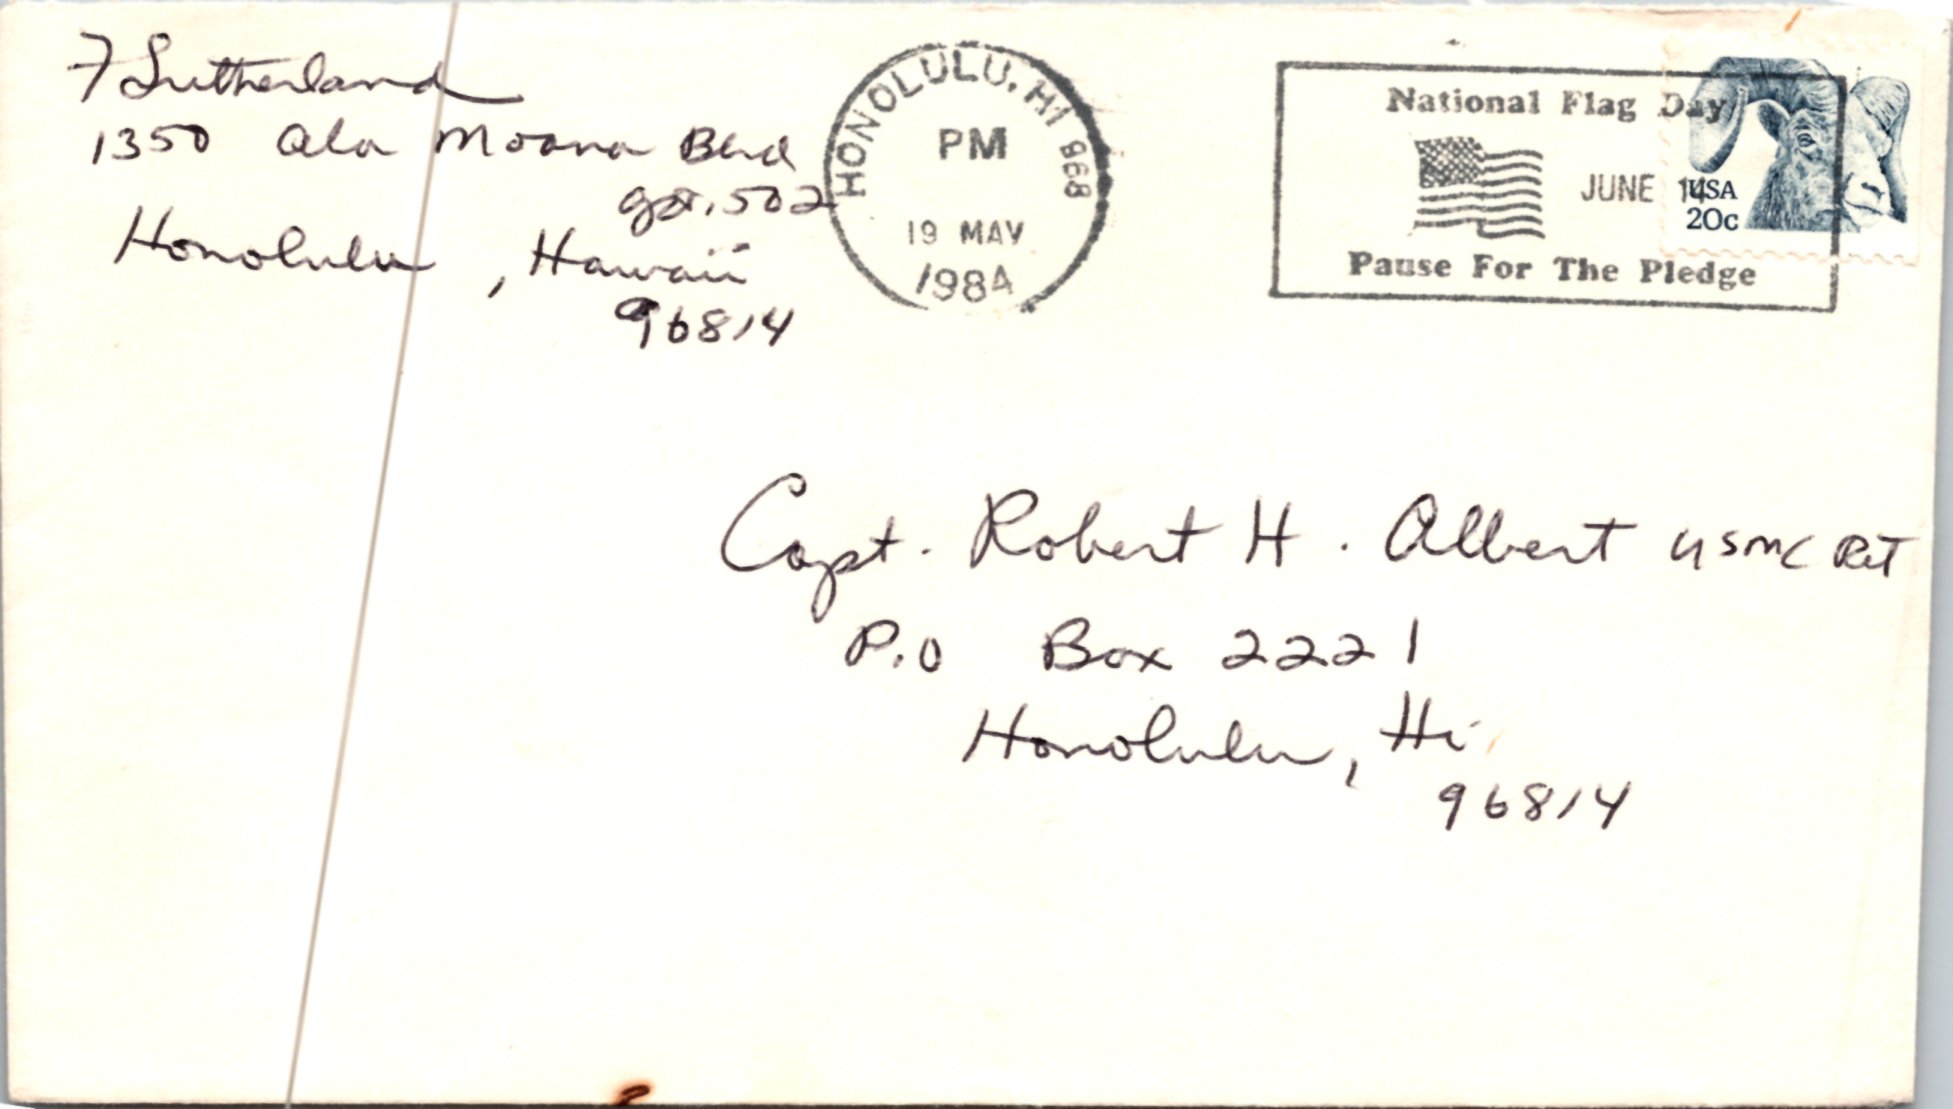 F Sutherland
1350 Ala Moana Blvd
apt. 502
Honolulu, Hawaii
96814
HONOLULU, HI 968
PM
19 MAY
1984
National Flag Day
JUNE 14
Pause For The Pledge
USA
20c
Capt. Robert H. Albert USMC Ret
P.O Box 2221
Honolulu, Hi
96814